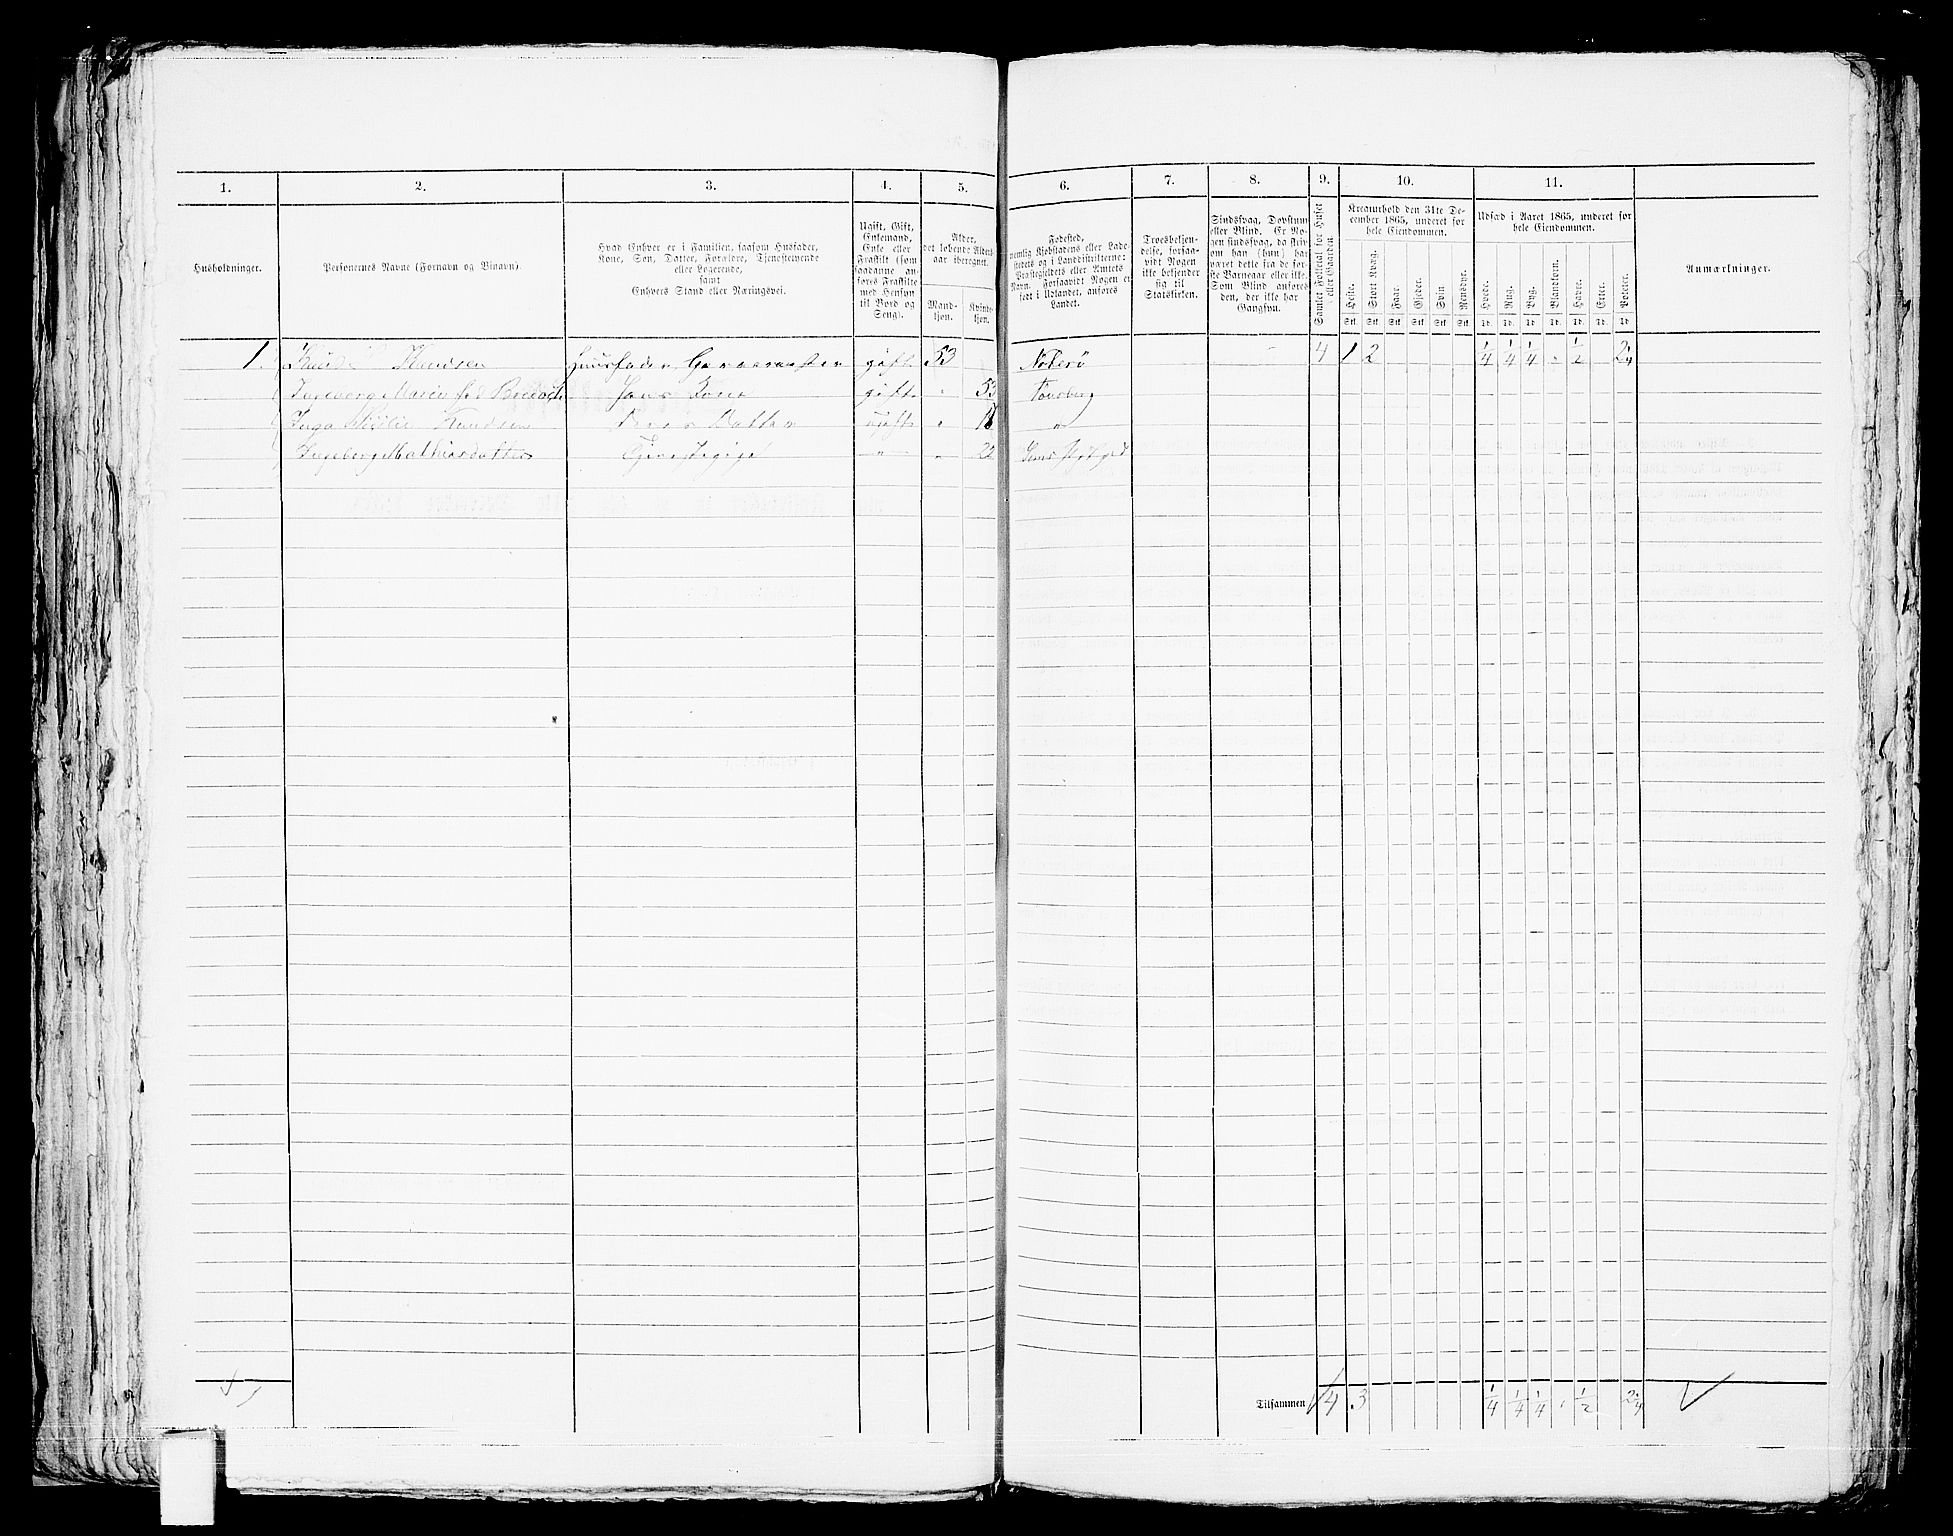 1. 2. 3. 4. 5. 6. 7. 8. 9. 10. 11.
Husholdninger.
Personernes Navne (Fornavn og Binavn).
Hvad Enhver er i Familien, saasom Husfader,
Kone, Søn, Datter, Forældre, Tjenestetyende
eller Logerende,
samt
Enhvers Stand eller Næringsvei.
Ugift, Gift,
Enkemand,
Enke eller
Fraskilt (som
saadanne an-
føres Fraskilte
med Hensyn
til Bord og
Seng).
Alder,
det løbende Alders-
aar iberegnet.
Mand-
kjøn.
Kvinde-
kjøn.
Fødested,
nemlig Kjøbstadens eller Lade-
stedets og i Landdistrikterne:
Præstegjeldets eller Amtets
Navn. Forsaavidt Nogen er
født i Udlandet, anføres
Landet.
Troesbekjen-
delse, forsaa-
vidt Nogen
ikke bekjender
sig til
Statskirken.
Sindssvag, Døvstum
eller Blind. Er No-
gen sindssvag, da skriv
om han (hun) har
været dette fra de før-
ste Barneaar eller ikke.
Som Blind anføres
den, der ikke har
Gangsyn.
Samlet Folketal for Huset
eller Gaarden.
Kreaturhold den 31te De-
cember 1865, underet for
hele Eiendommen.
Heste. Stort Kvæg. Faar. Gjeder. Svin Rensdyr.
Stk. Stk. Stk. Stk. Stk. Stk.
Udsæd i Aaret 1865, underet for
hele Eiendommen.
Hvede. Rug. Byg. Blandkorn. Havre. Erter. Poteter.
Td. Td. Td. Td. Td. Td. Td.
Anmærkninger.
1. Knud Knudsen Huusfader, gift 53 Nøterø 4 1 2 1/4 1/4 1/4 1/2 2 1/4
Ingeborg Marie fød Hans Kone gift 53 Tønsberg
Inga Knudsen Datter ugift "
Ingeborg Mathiasdatter Tjenestepige " 22 Sems
Tilsammen 4 3 1/4 1/4 1/4 1/2 2 1/4